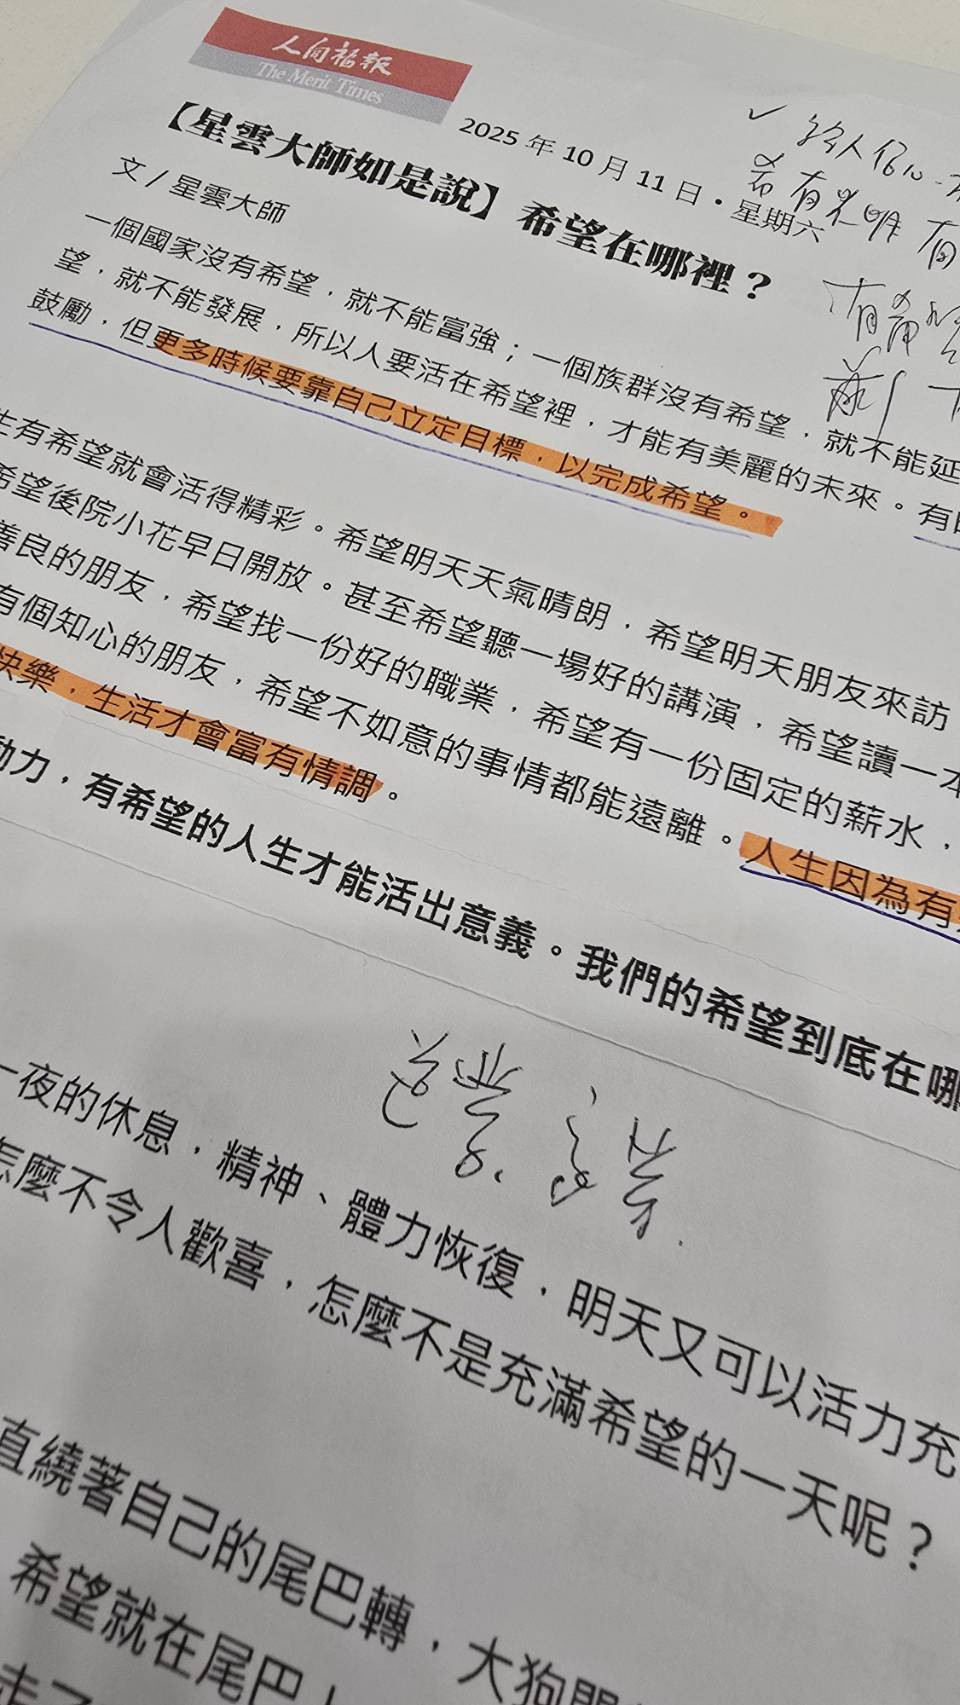 人間福報
The Merit Times
2025 年 10 月 11 日・星期六
【星雲大師如是說】希望在哪裡？
文／星雲大師
一個國家沒有希望，就不能富強；一個族群沒有希望，就不能延
望，就不能發展，所以人要活在希望裡，才能有美麗的未來。有
鼓勵，但更多時候要靠自己立定目標，以完成希望。
生有希望就會活得精彩。希望明天天氣晴朗，希望明天朋友來訪，
希望後院小花早日開放。甚至希望聽一場好的講演，希望讀一本
善良的朋友，希望找一份好的職業，希望有一份固定的薪水，
有個知心的朋友，希望不如意的事情都能遠離。人生因為有
快樂，生活才會富有情調。
動力，有希望的人生才能活出意義。我們的希望到底在哪
一夜的休息，精神、體力恢復，明天又可以活力充
怎麼不令人歡喜，怎麼不是充滿希望的一天呢？
直繞著自己的尾巴轉，大狗問
希望就在尾巴上
走了